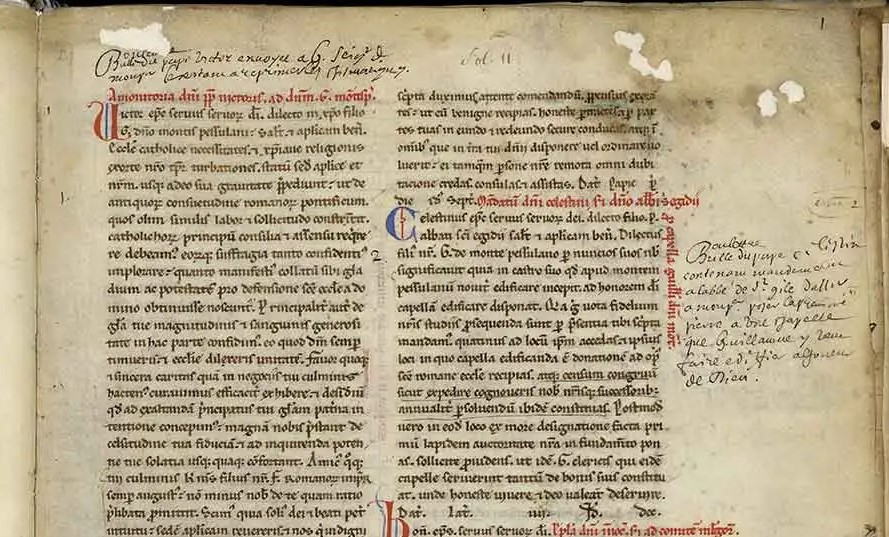 Bulle du pape Victor envoyee a G. Seigr d.
Amonitoria dni pp victoris. ad dnm. G. montispl.
Victor epc servus servor di. dilecto in xpo filio
G. dno montis pessulani. salt & aplicam ben.
Eccle catholice necessitates. & xpiane religionis
nrm. usq adeo sua gravitate p̄pediunt. ut de
antiquor consuetudine romanor pontificum
quos olim similis labor & sollicitudo constrixit.
catholichor principu consilia & assensu reqre
re debeam. eorq suffragia tanto confidenti
implorare. quanto manifesti collatu sibi gla
dium ac potestate p defensione sce eccle a do
mino obtinuisse noscunt. P principalit aut de
gla tue magnitudinis & sanguinis generosi
tate in hac parte confidim. eo quod dm semp
timueris & ecclie dilexeris unitate. Favor quoq
& sincera caritas qua in negociis tui culminis
hacten curavimus efficacit exhibere. & desidiu
qd ad exaltanda principatus tui glam patna in
tentione concepim. magna nobis pstant de
celsitudine tua fiducia. & ad inquirenda poten
ne tue solatia usq quaq confortant. Amic qq
tui culminis kmus filius nr F. Romanor impr
semp august. no minus nob de te quam ratio
phibata promittit. Scim qua soli dei & beati pet
intuitu sede aplicam revereris & nos quidigni
Fol. II
1
scpta duximus attente comendandu. ppensius
tes. ut eu benigne recipias. honeste ptractes & p par
tes tuas in eundo & redeundo secure conducas. atq i
omib que in tra tua dni disponere vel ordinare vo
luerit. ei tamqm psone nre remota omni dubi
tacione credas. consulas & assistas. Dat Papie
die Sept. Mandatu dni celestini fi dno abbi s egidii
Celestinus epc servus servor dei. dilecto filio. P.
abbati sci egidii salt & aplicam ben. Dilectus
fili nr G. de monte pessulano p nuncios suos nob
significavit quia in castro suo qd apud montem
pessulanu novit edificare incepit. ad honorem di
capella edificare disponat. Q a g vota fidelium
nris studiis psequenda sunt p psentia tibi scpta
mandam. quatinus ad locu ipm accedas & ipsius
loci in quo capella edificanda e donatione ad op
sce romane eccle recipias. atq censum congruu
sicut expedire cognoveris nob nrisq successorib
annualit psolvendu ibide constituas. Postmod
vero in eod loco ex more designatione facta pri
mu lapidem auctoritate nra in fundamto pon
as. sollicite pvidens. ut ide G. clericis qui eide
capelle servierint tantu de bonis suis constitu
at. unde honeste vivere & deo valeat deservire.
Dat. Lat. iiii. Id. dec.
on. eps. servus servor di.
Bulle du pape Celestin
contenant mandement
a labbe de St gile
pierre a dite chapelle
que Guillaume y veut
faire edifier a lhonneur
de Dieu.